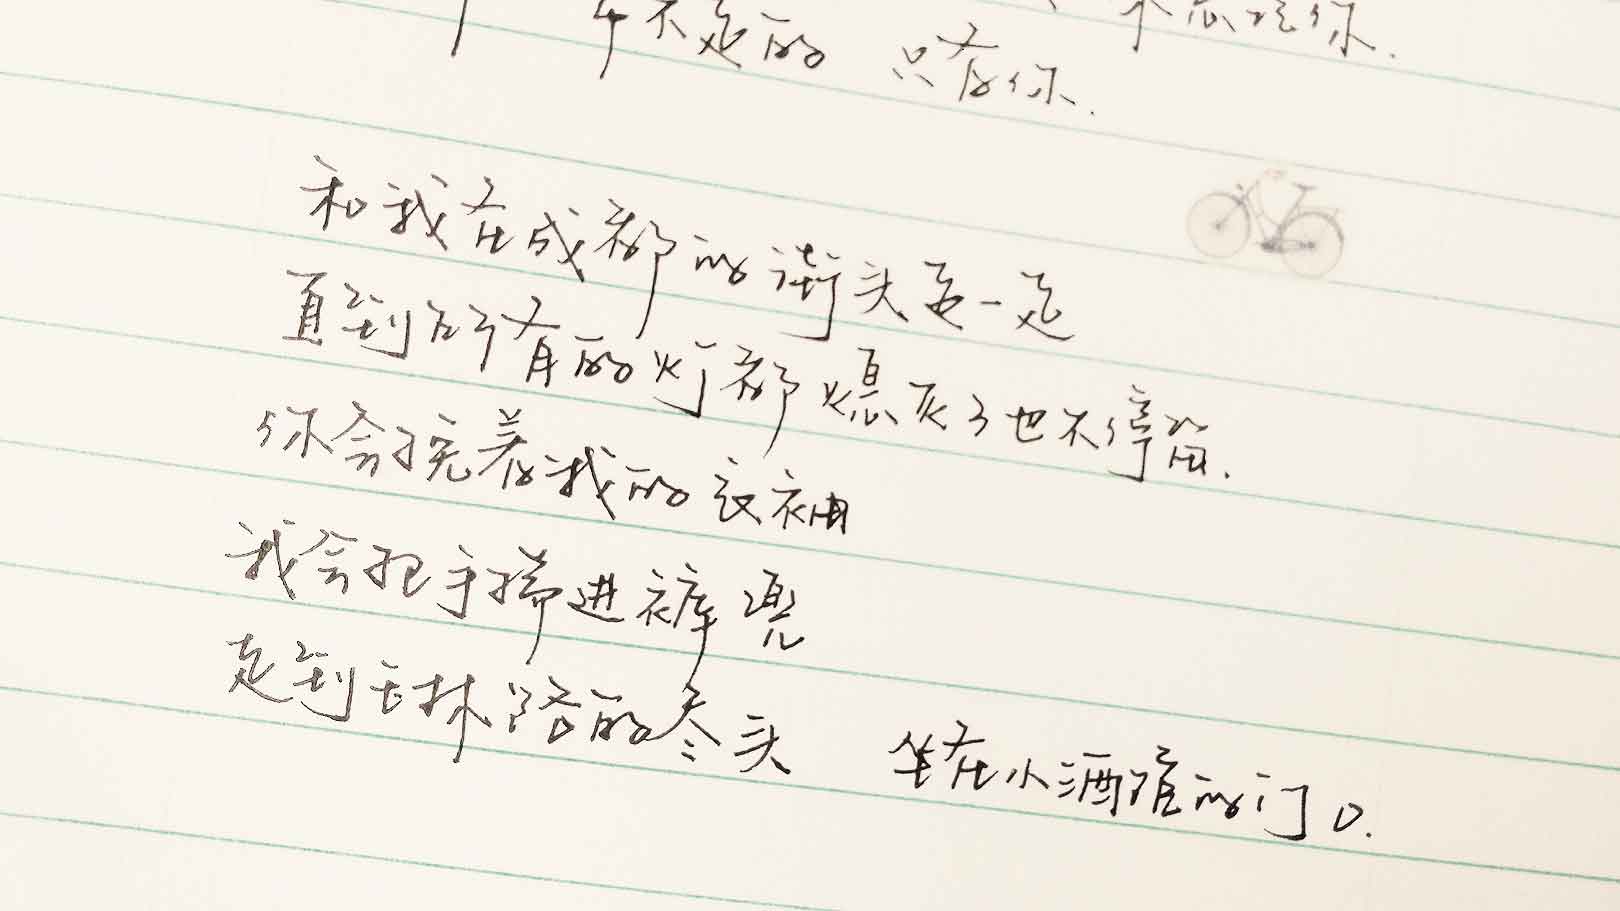 不愿让你.
走的 只有你.
和我在成都的街头走一走
直到所有的灯都熄灭了也不停留.
你会挽着我的衣袖
我会把手揣进裤兜
走到玉林路的尽头 坐在小酒馆的门口.